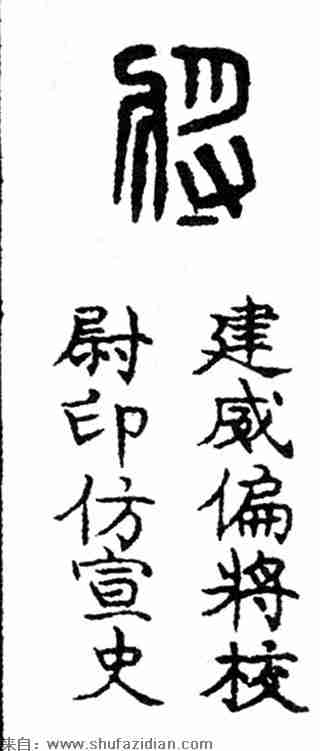 建威偏將校
尉印仿宣史
来自：www.shufazidian.com